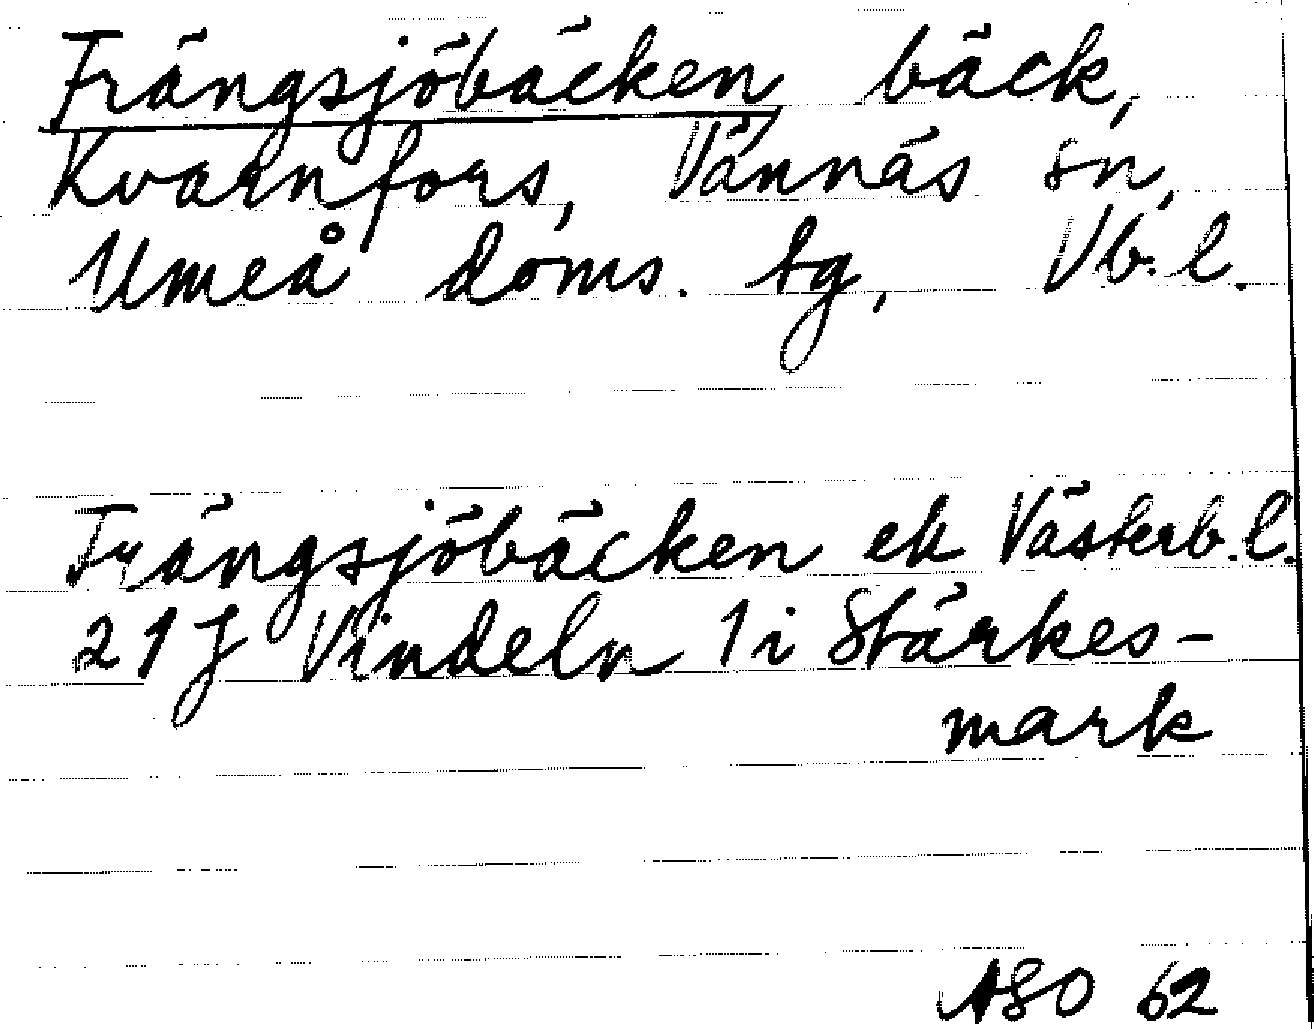 Trängsjöbäcken bäck,
Kvarnfors, Vännäs sn,
Umeå doms. tg, Vb.l.
Trängsjöbäcken ek Västerb.l.
21J Vindeln 1i Stärkes-
mark
ASO 62